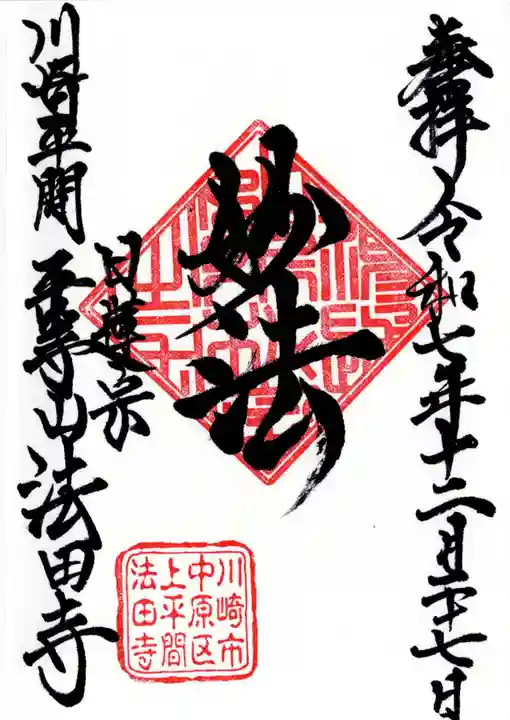 奉拝 令和七年十二月二十七日
妙法
日蓮宗
川崎平間 平等山法田寺
川崎市
中原区
上平間
法田寺